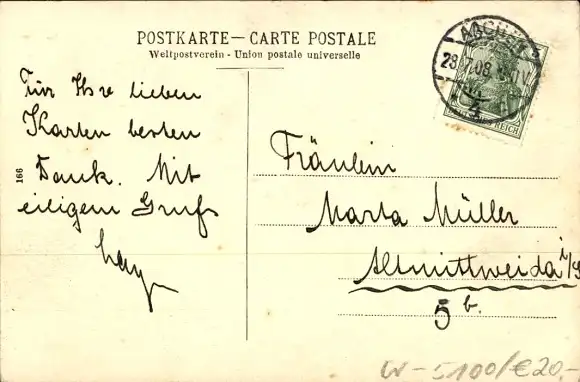 POSTKARTE — CARTE POSTALE
Weltpostverein - Union postale universelle
Für Ihre lieben
Karten besten
Dank. Mit
eiligem Gruß
166
28.7.08
REICH
Fräulein
Marta Müller
Altmittweida i/S
5 b.
W-5100/€20,-